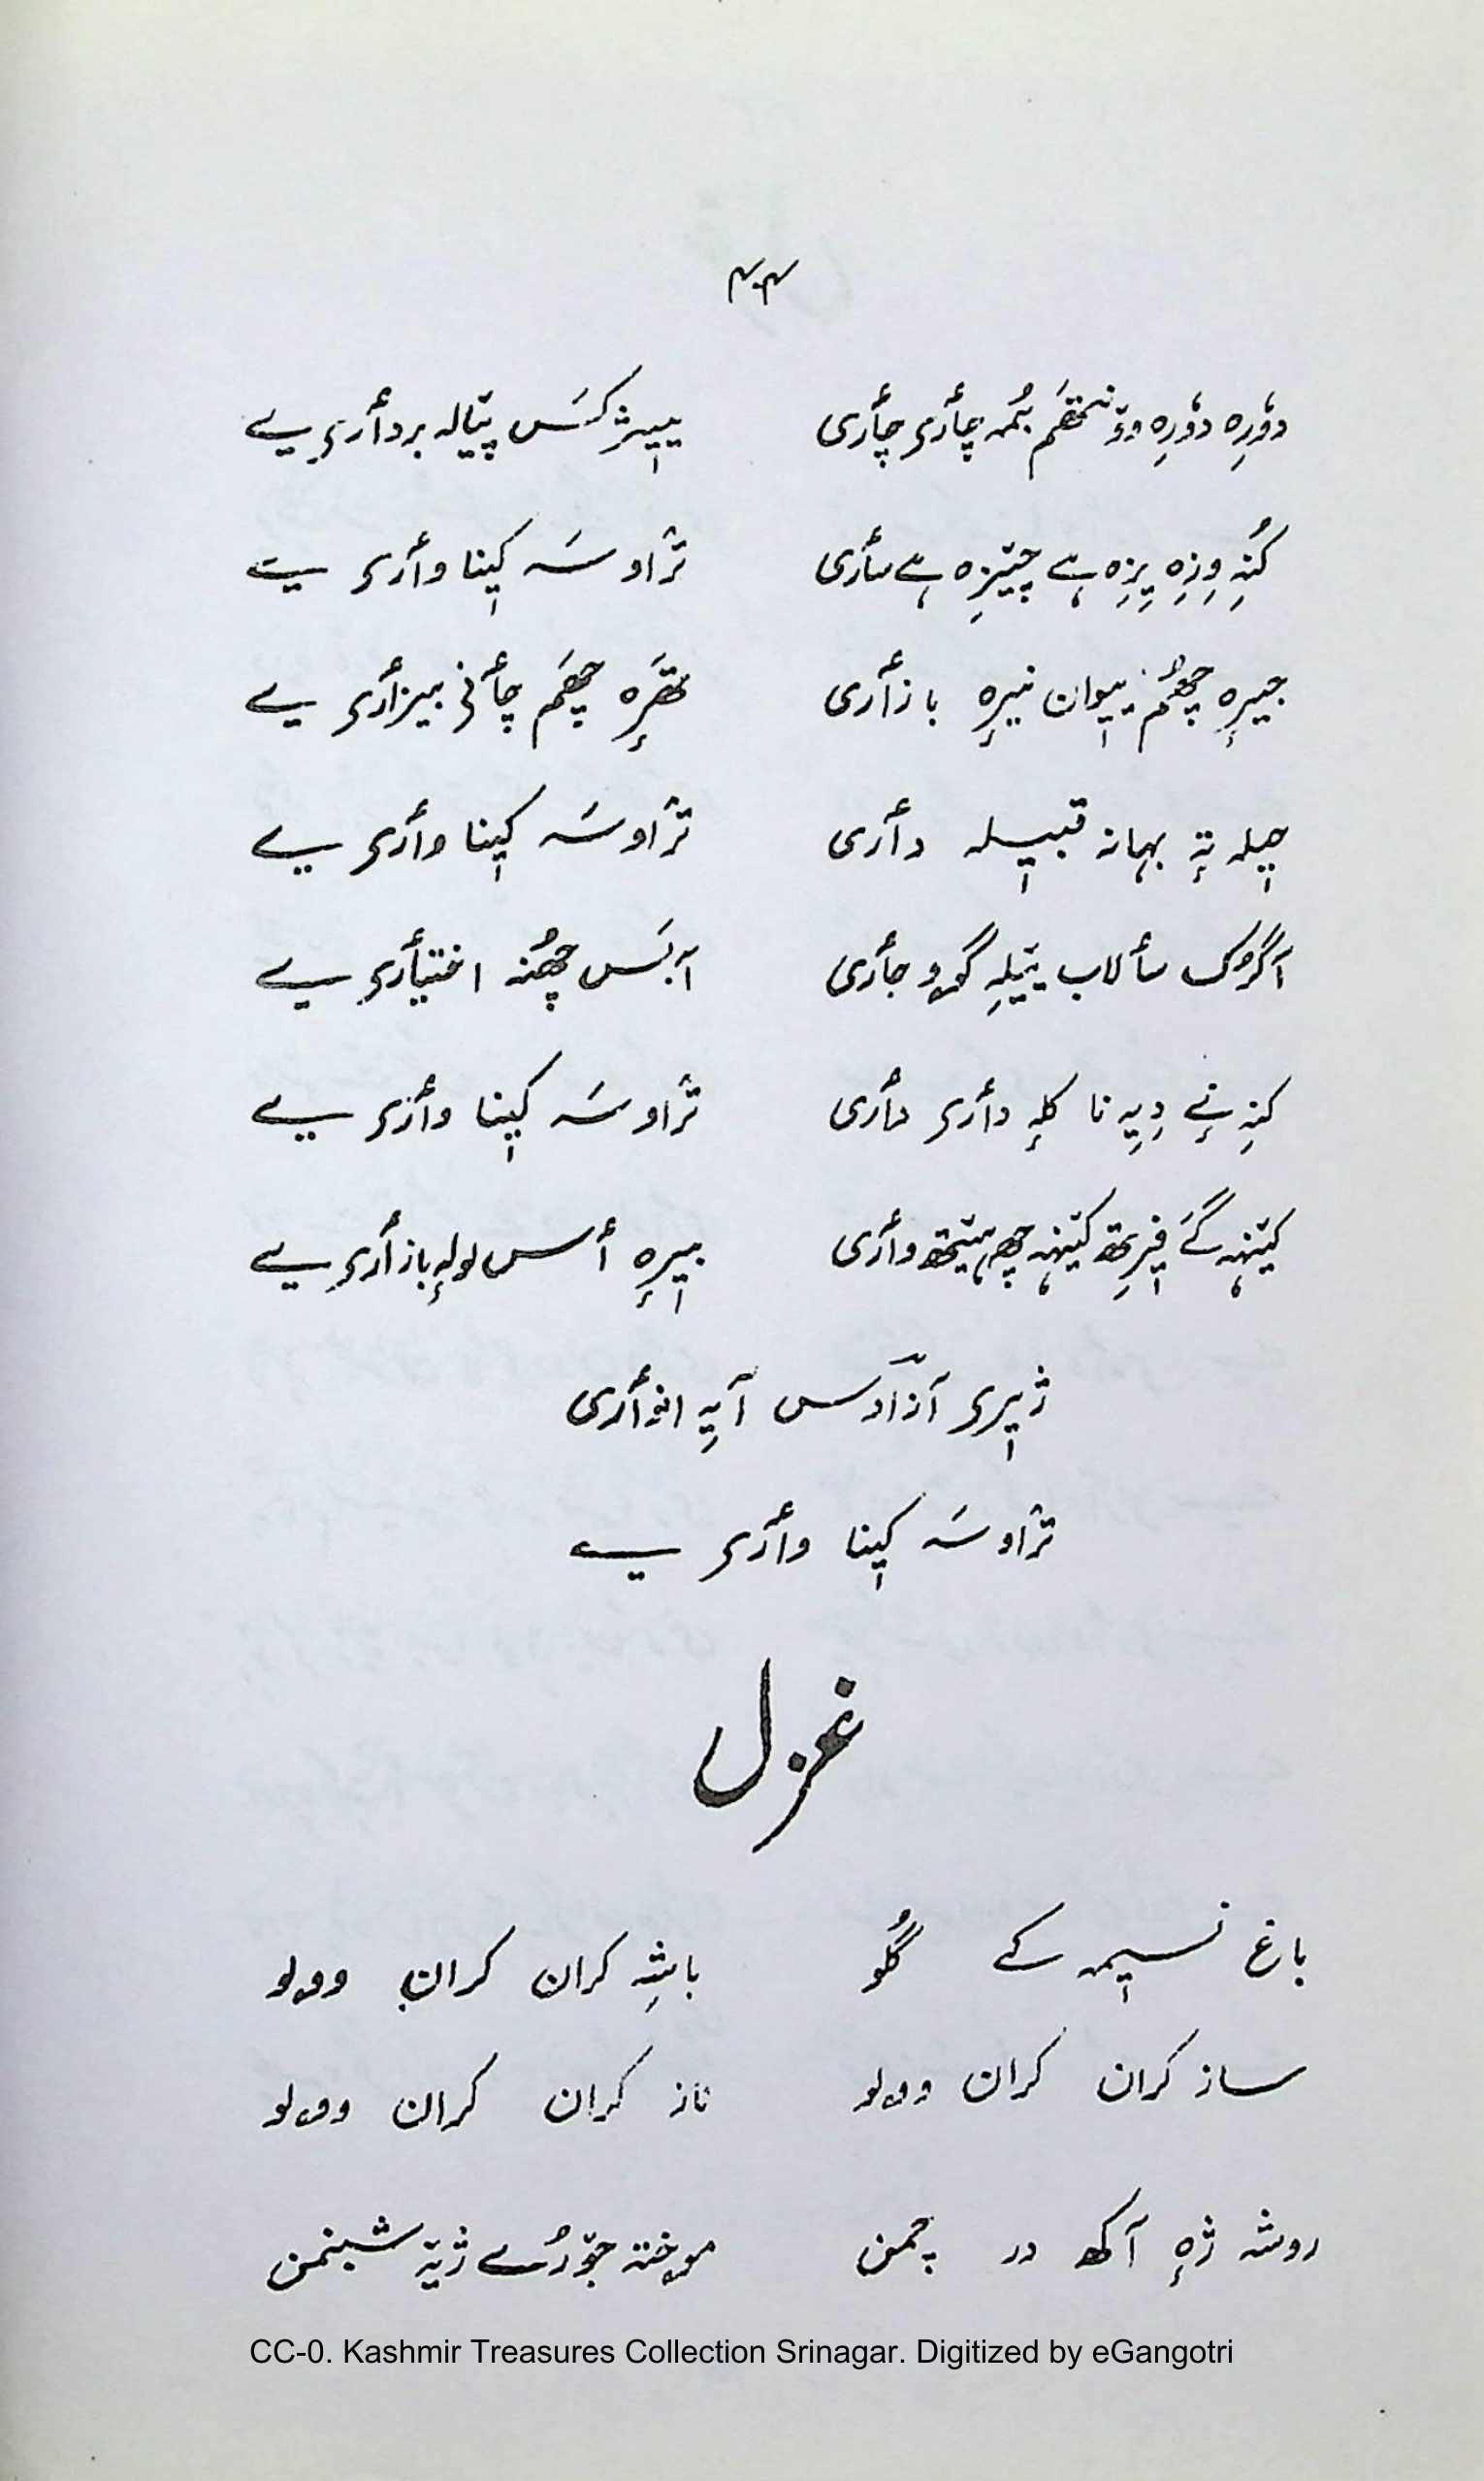 ۴۰۴
دۄرِہ دۄرِہ وۄتھم بُمہ چأری چأری پیٖژ کَس پیالہ بردأری یے
کُنہِ وِزِہ پزِہ ہے چیزِہ ہے سأری ترٛاوسَہ کیٖنا وأری یے
جیرٕہ چھُم پیوان نیرٕہ بازأری تھرٕہ چھَم چأنی بیزأری یے
حیٖلہ تہٕ بہانہ قبیٖلہ دأری ترٛاوسَہ کیٖنا وأری یے
آگرُک سألاب یێلہِ گوو جأری آبَس چھُنہ اختیأری یے
کنہِ نے دِیہِ نا کلہٕ دأری دأری ترٛاوسَہ کیٖنا وأری یے
کینہہ گے فیٖرتھ کینہہ چھ ہیتھ وأری بیٖرٕہ أس لولہٕ بازأری یے
ژیٖری آزادس آیہِ انوأری
ترٛاوسَہ کیٖنا وأری یے
غزل
باغ نسیٖمہ کے گُلو باشہِ کران کران وولو
ساز کران کران وولو ناز کران کران وولو
روشہ ژٕہ آکھ در چمن موختہ جۆرُے ژیہٕ شبنمن
CC-0. Kashmir Treasures Collection Srinagar. Digitized by eGangotri